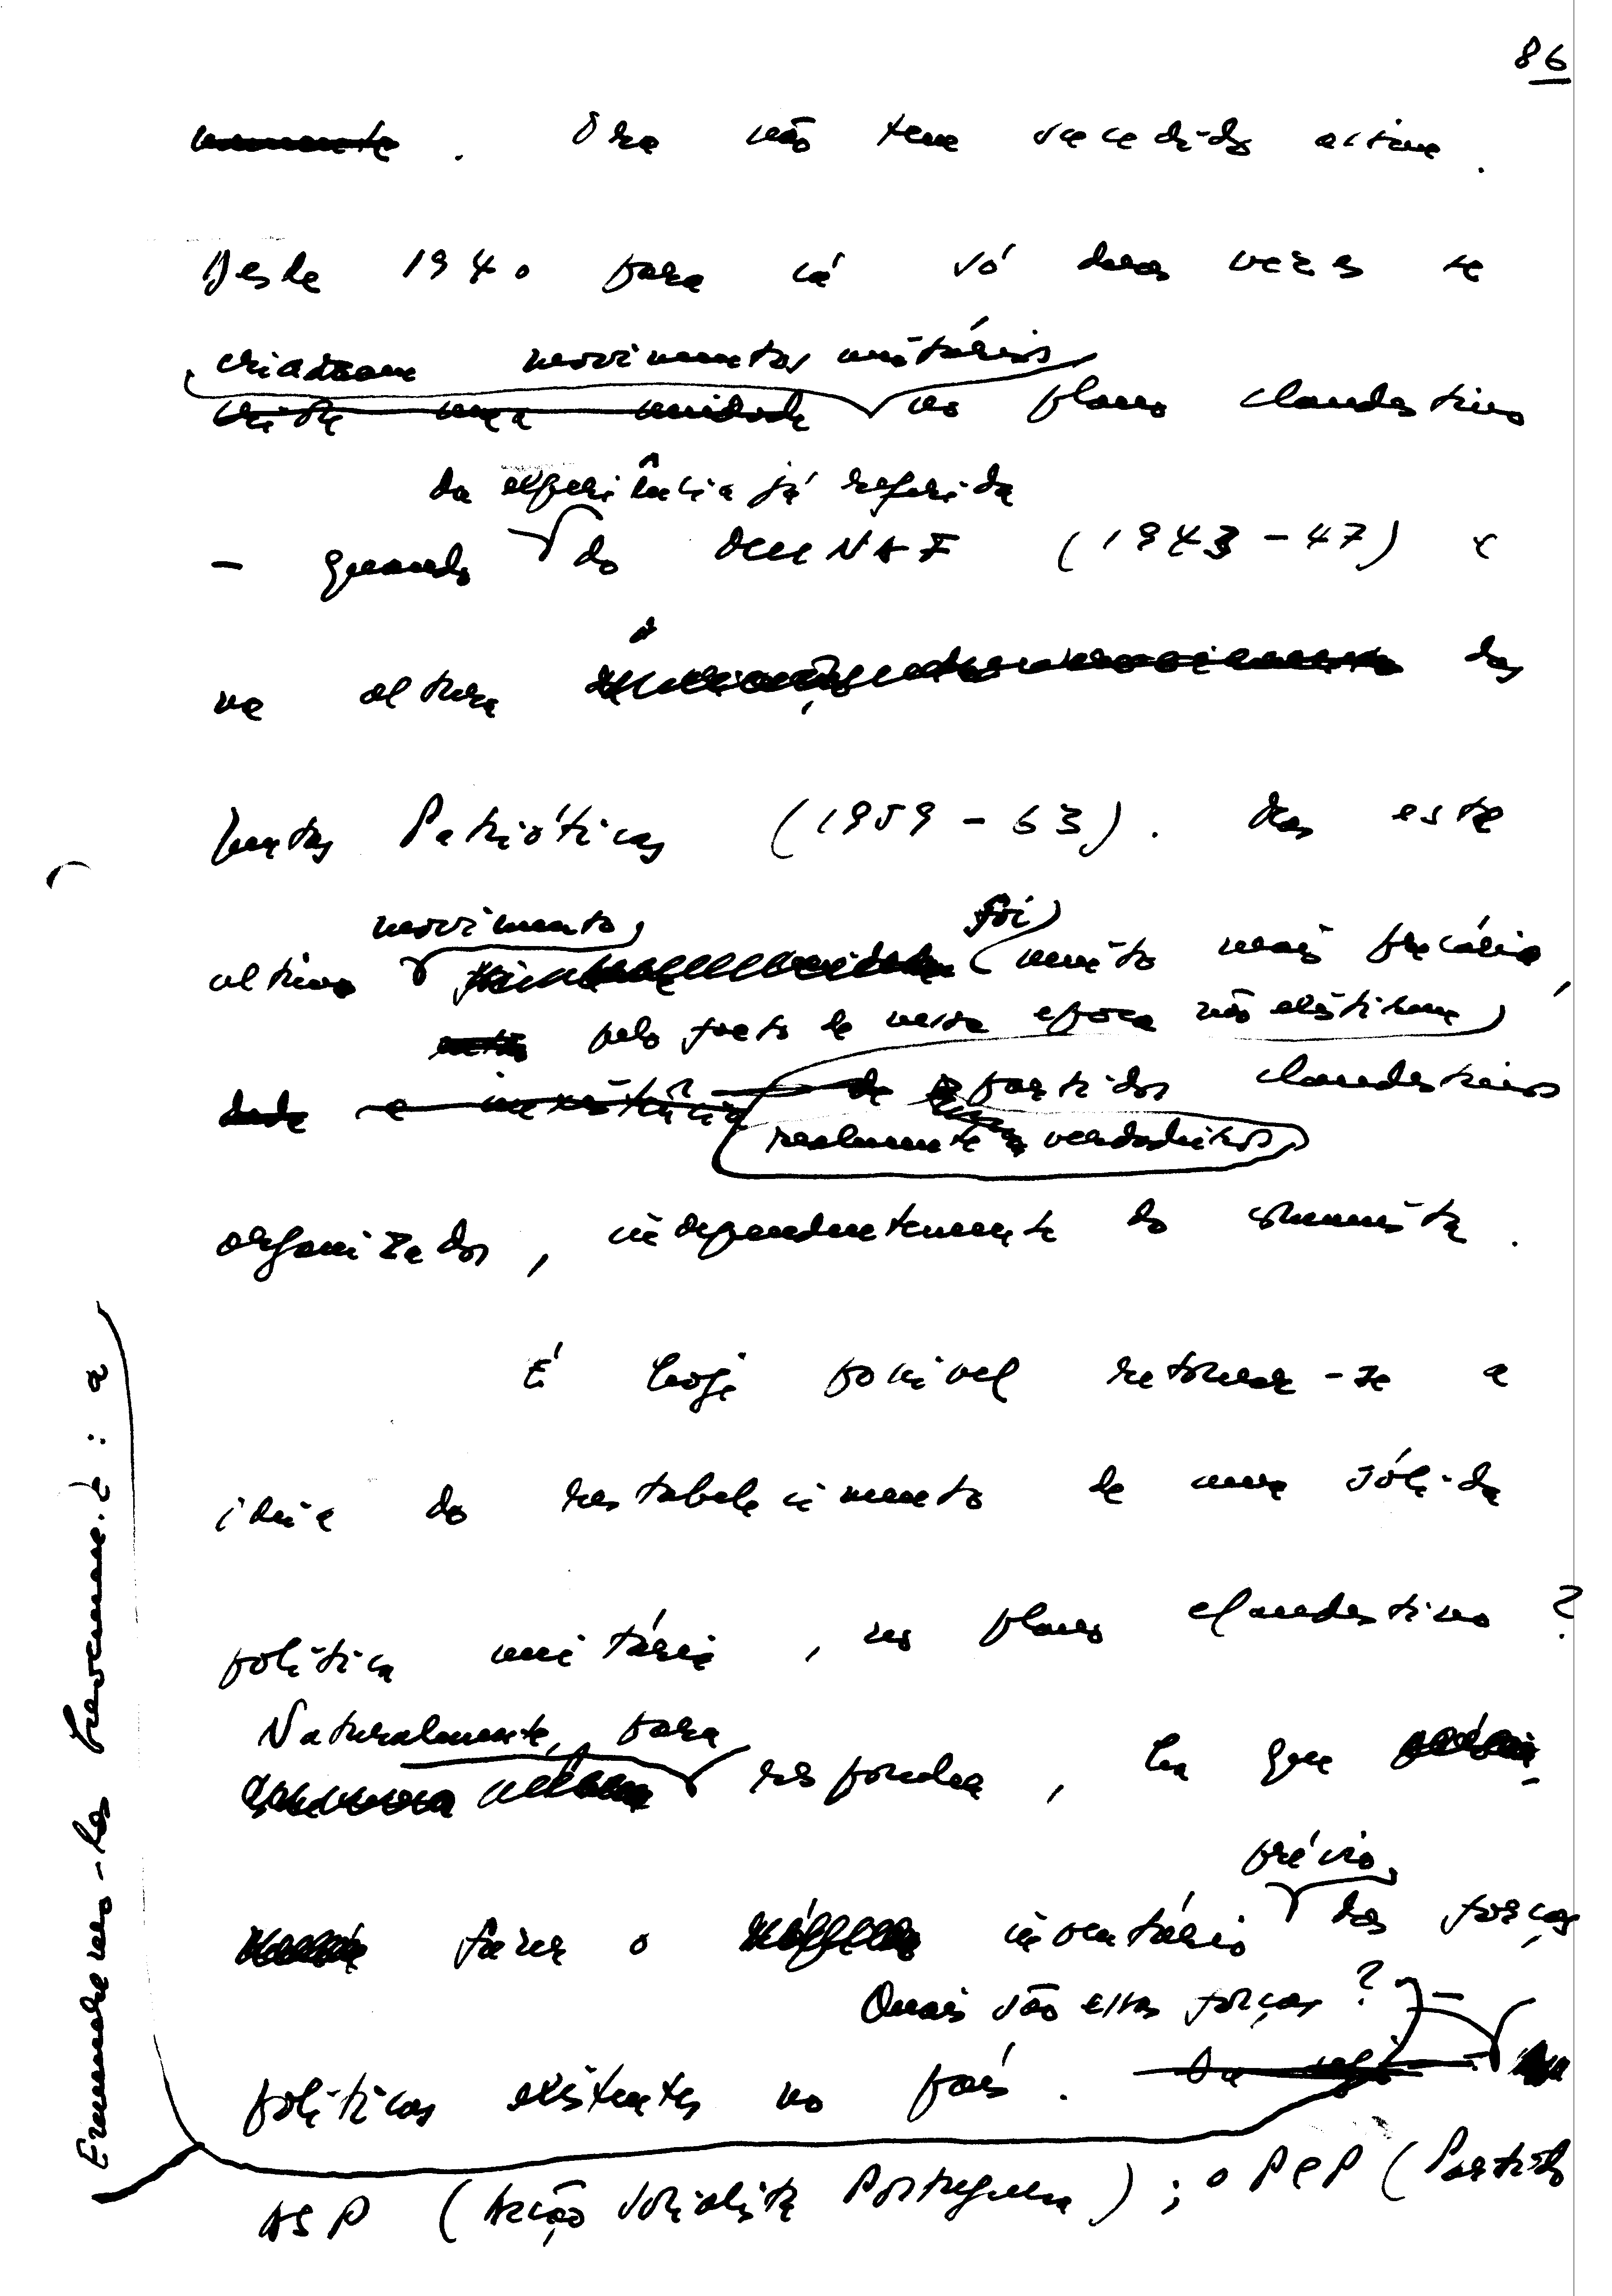 86
. Ora não tem sucedido assim.
Desde 1940 para cá só duas vezes se
criaram movimentos unitários
criou uma unidade no plano clandestino
da experiência já referida
- quando do MUNAF (1943-47) e
na altura das
Juntas Patrióticas (1959-63). Mas este
movimento foi
último muito mais precário,
pelo facto de nessa época não existirem
dada a inexistência de partidos clandestinos
realmente verdadeiros
organizados, independentemente do comunista.
É hoje possível retomar-se a
ideia do restabelecimento de uma sólida
política unitária, no plano clandestino?
Naturalmente, para
responder, há que
prévio
fazer o inventário das forças
Quais são essas forças? -
políticas existentes no país.
Enumeremo-las brevemente: a
ASP (Acção Socialista Portuguesa); o PCP (Partido